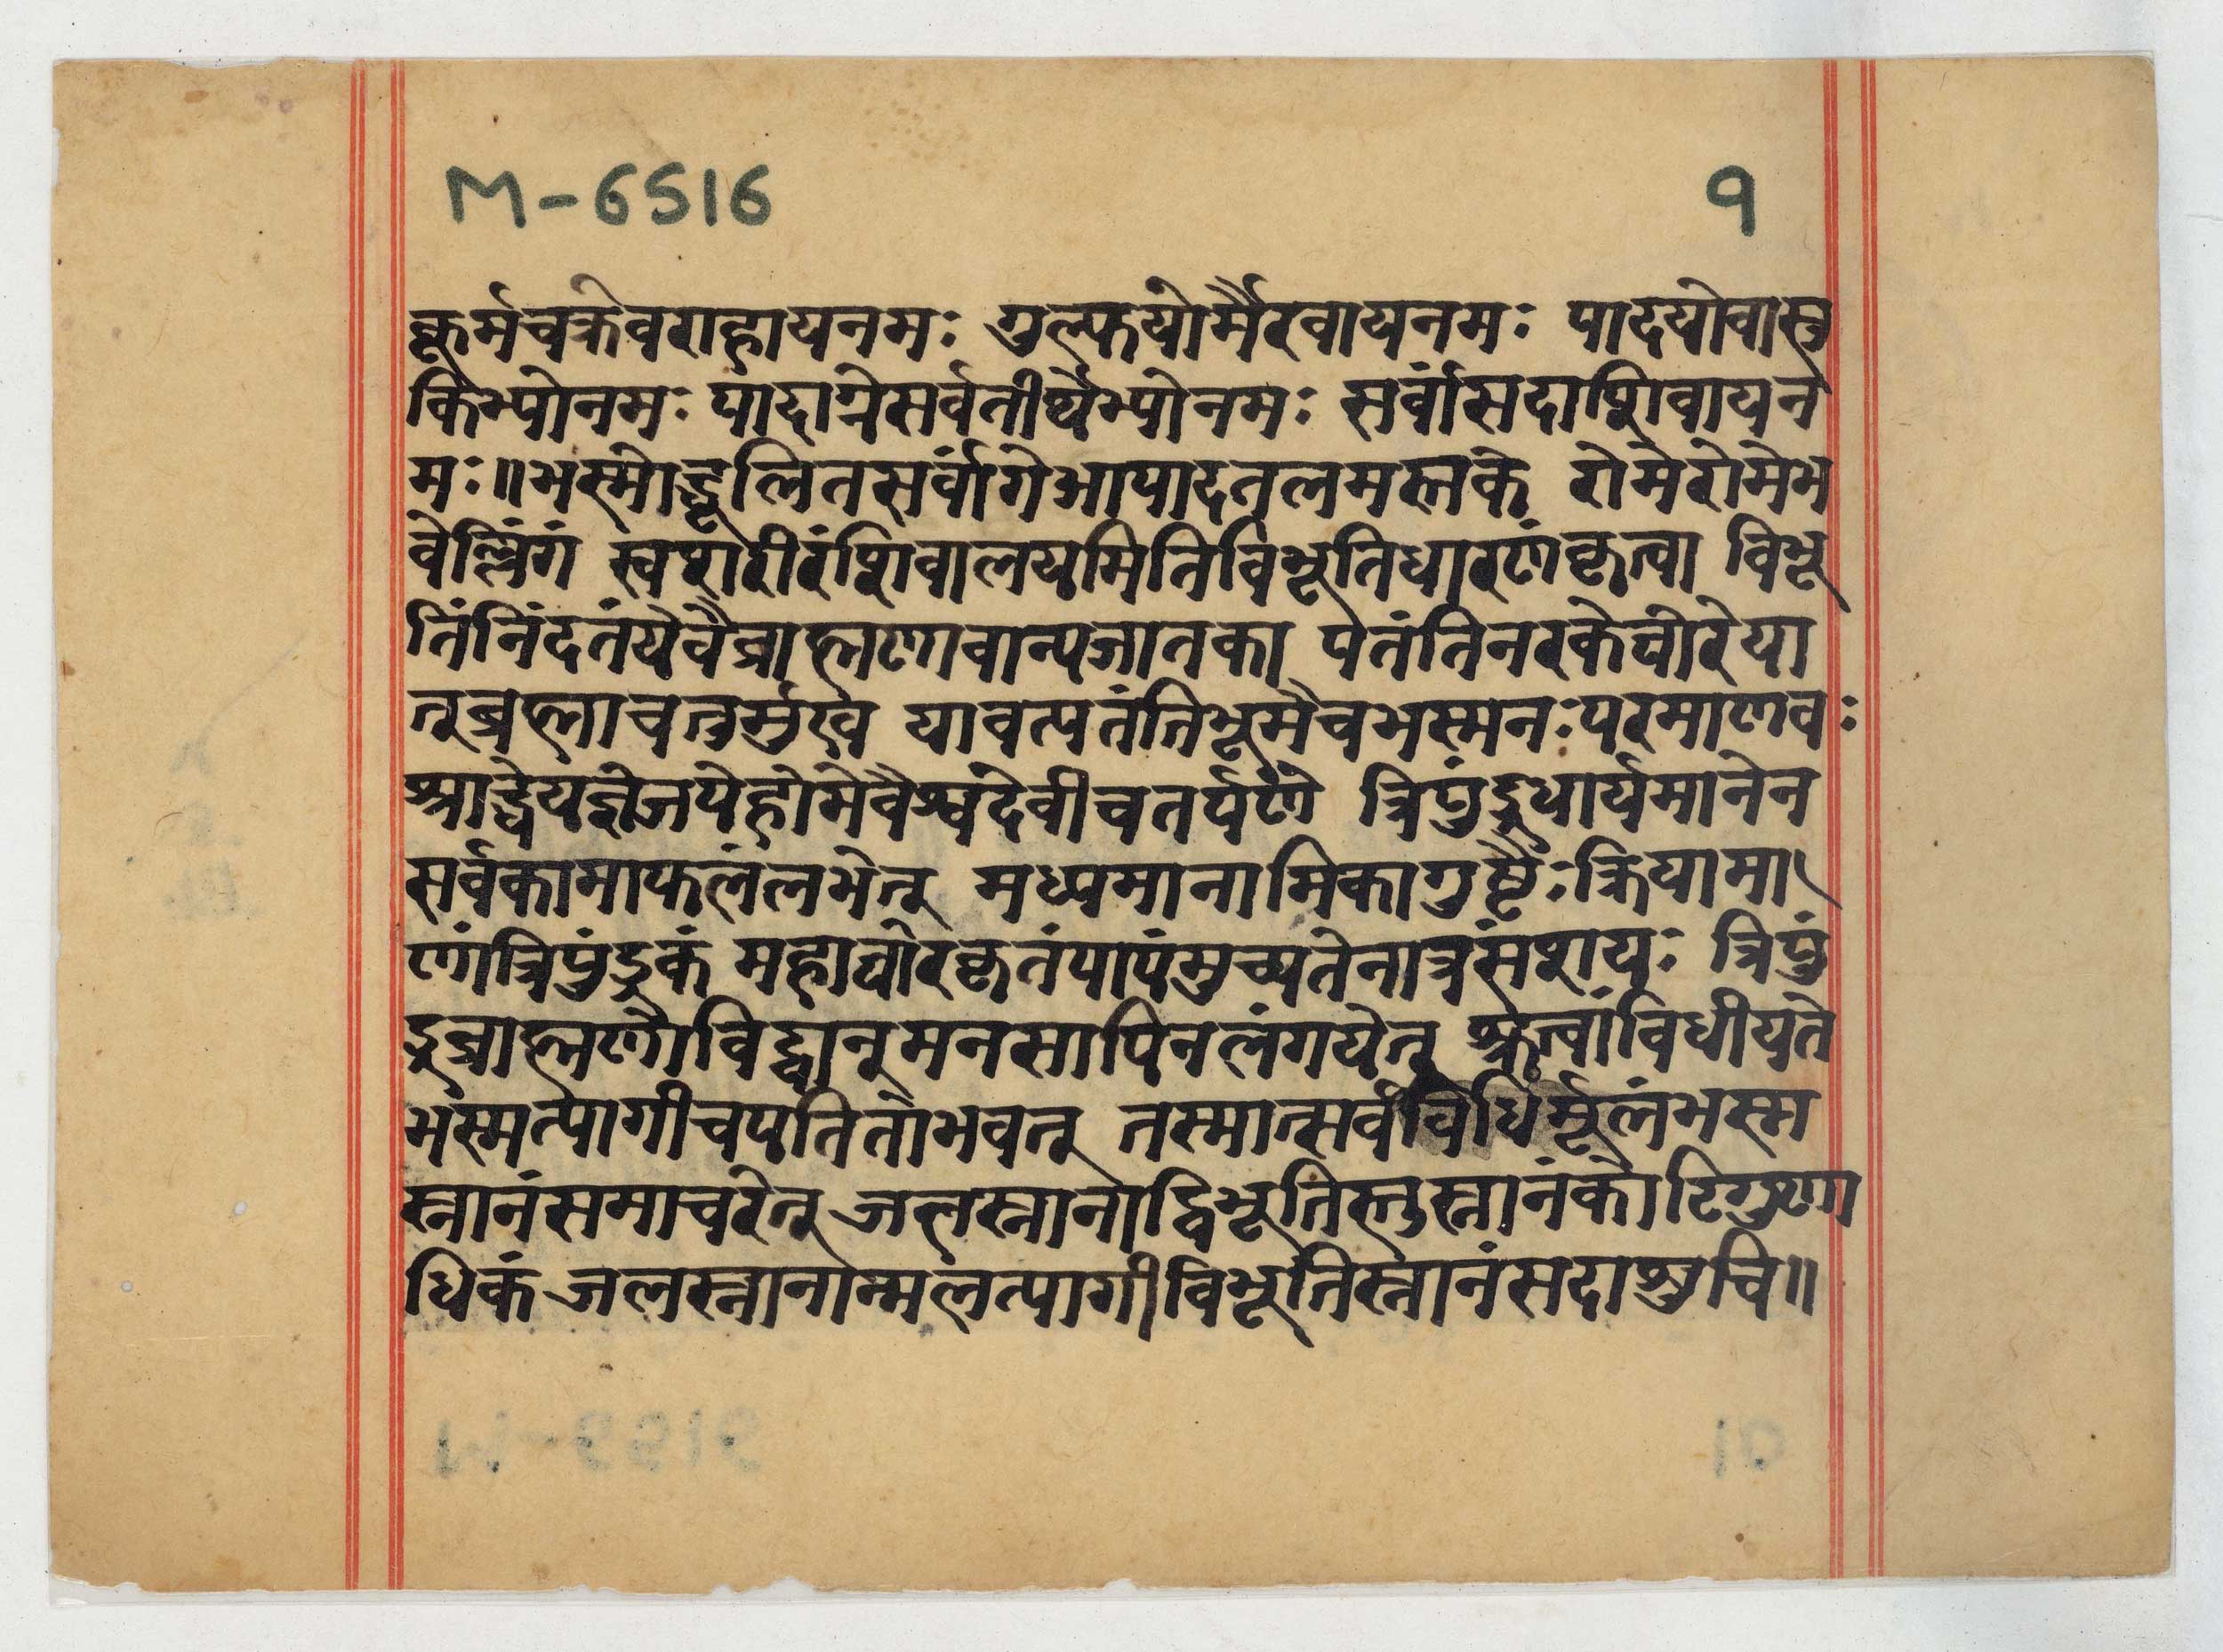 M-6516 १
कूर्मचक्रेवराहायनमः गुल्फयोर्मैरवायनमः पादयोवासु
किभ्योनमः पादाग्रेसर्वतीर्थेभ्योनमः सर्वांसदाशिवायन
मः॥भस्मोद्धूलितसर्वांगेआपादतलमस्तके रोमेरोमेभ
वेल्लिंगं स्वशरीरंशिवालयमितिविभूतिधारणंकृत्वा विभू
तिंनिंदतंयेवैब्राह्मणावान्यजातका पतंतिनरकेघोरेया
त्ब्रह्माचतुर्मुख यावत्पतंतिभूमैचभस्मनःपरमाणवः
श्राद्धेयज्ञेजपेहोमेवैश्वदेवीचतर्पणे त्रिपुंड्रधार्यमानेन
सर्वकामाफलंलभेत् मध्यमानामिकागुष्टैःक्रियामा
णंत्रिपुंड्रकं महाघोरकृतंपापंमुच्यतेनात्रसंशयः त्रिपुं
ड्रब्राह्मणोविद्वान्मनसापिनलंगयेत् श्रुत्वांविधीयते
भस्मत्यागीचपतितोभवत् तस्मात्सर्वविधिर्मूलंभस्म
स्नानंसमाचरेत् जलस्नानाद्विभूतिस्तुस्नानंकोटिगुणा
धिकं जलस्नानान्मलंत्यागीविभूतिस्नानंसदाशुचि॥